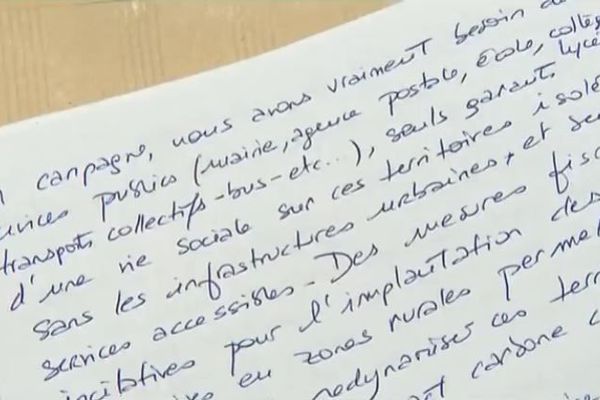 campagne, nous avons vraiment besoin de
services publics (mairie, agence postale, école, collège
transports collectifs-bus-etc...), seuls garants lycé
d'une vie sociale sur ces territoires isolé
sans les infrastructures urbaines, et
services accessibles - Des mesures fisc
incitatives pour l'implantation des
en zones rurales permet
redynamiser ces terr
carbone